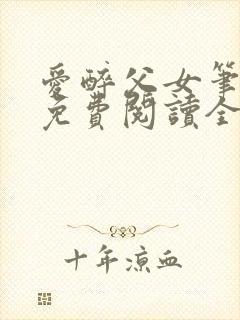 愛醉父女筆
免費閱讀全
十年涼血